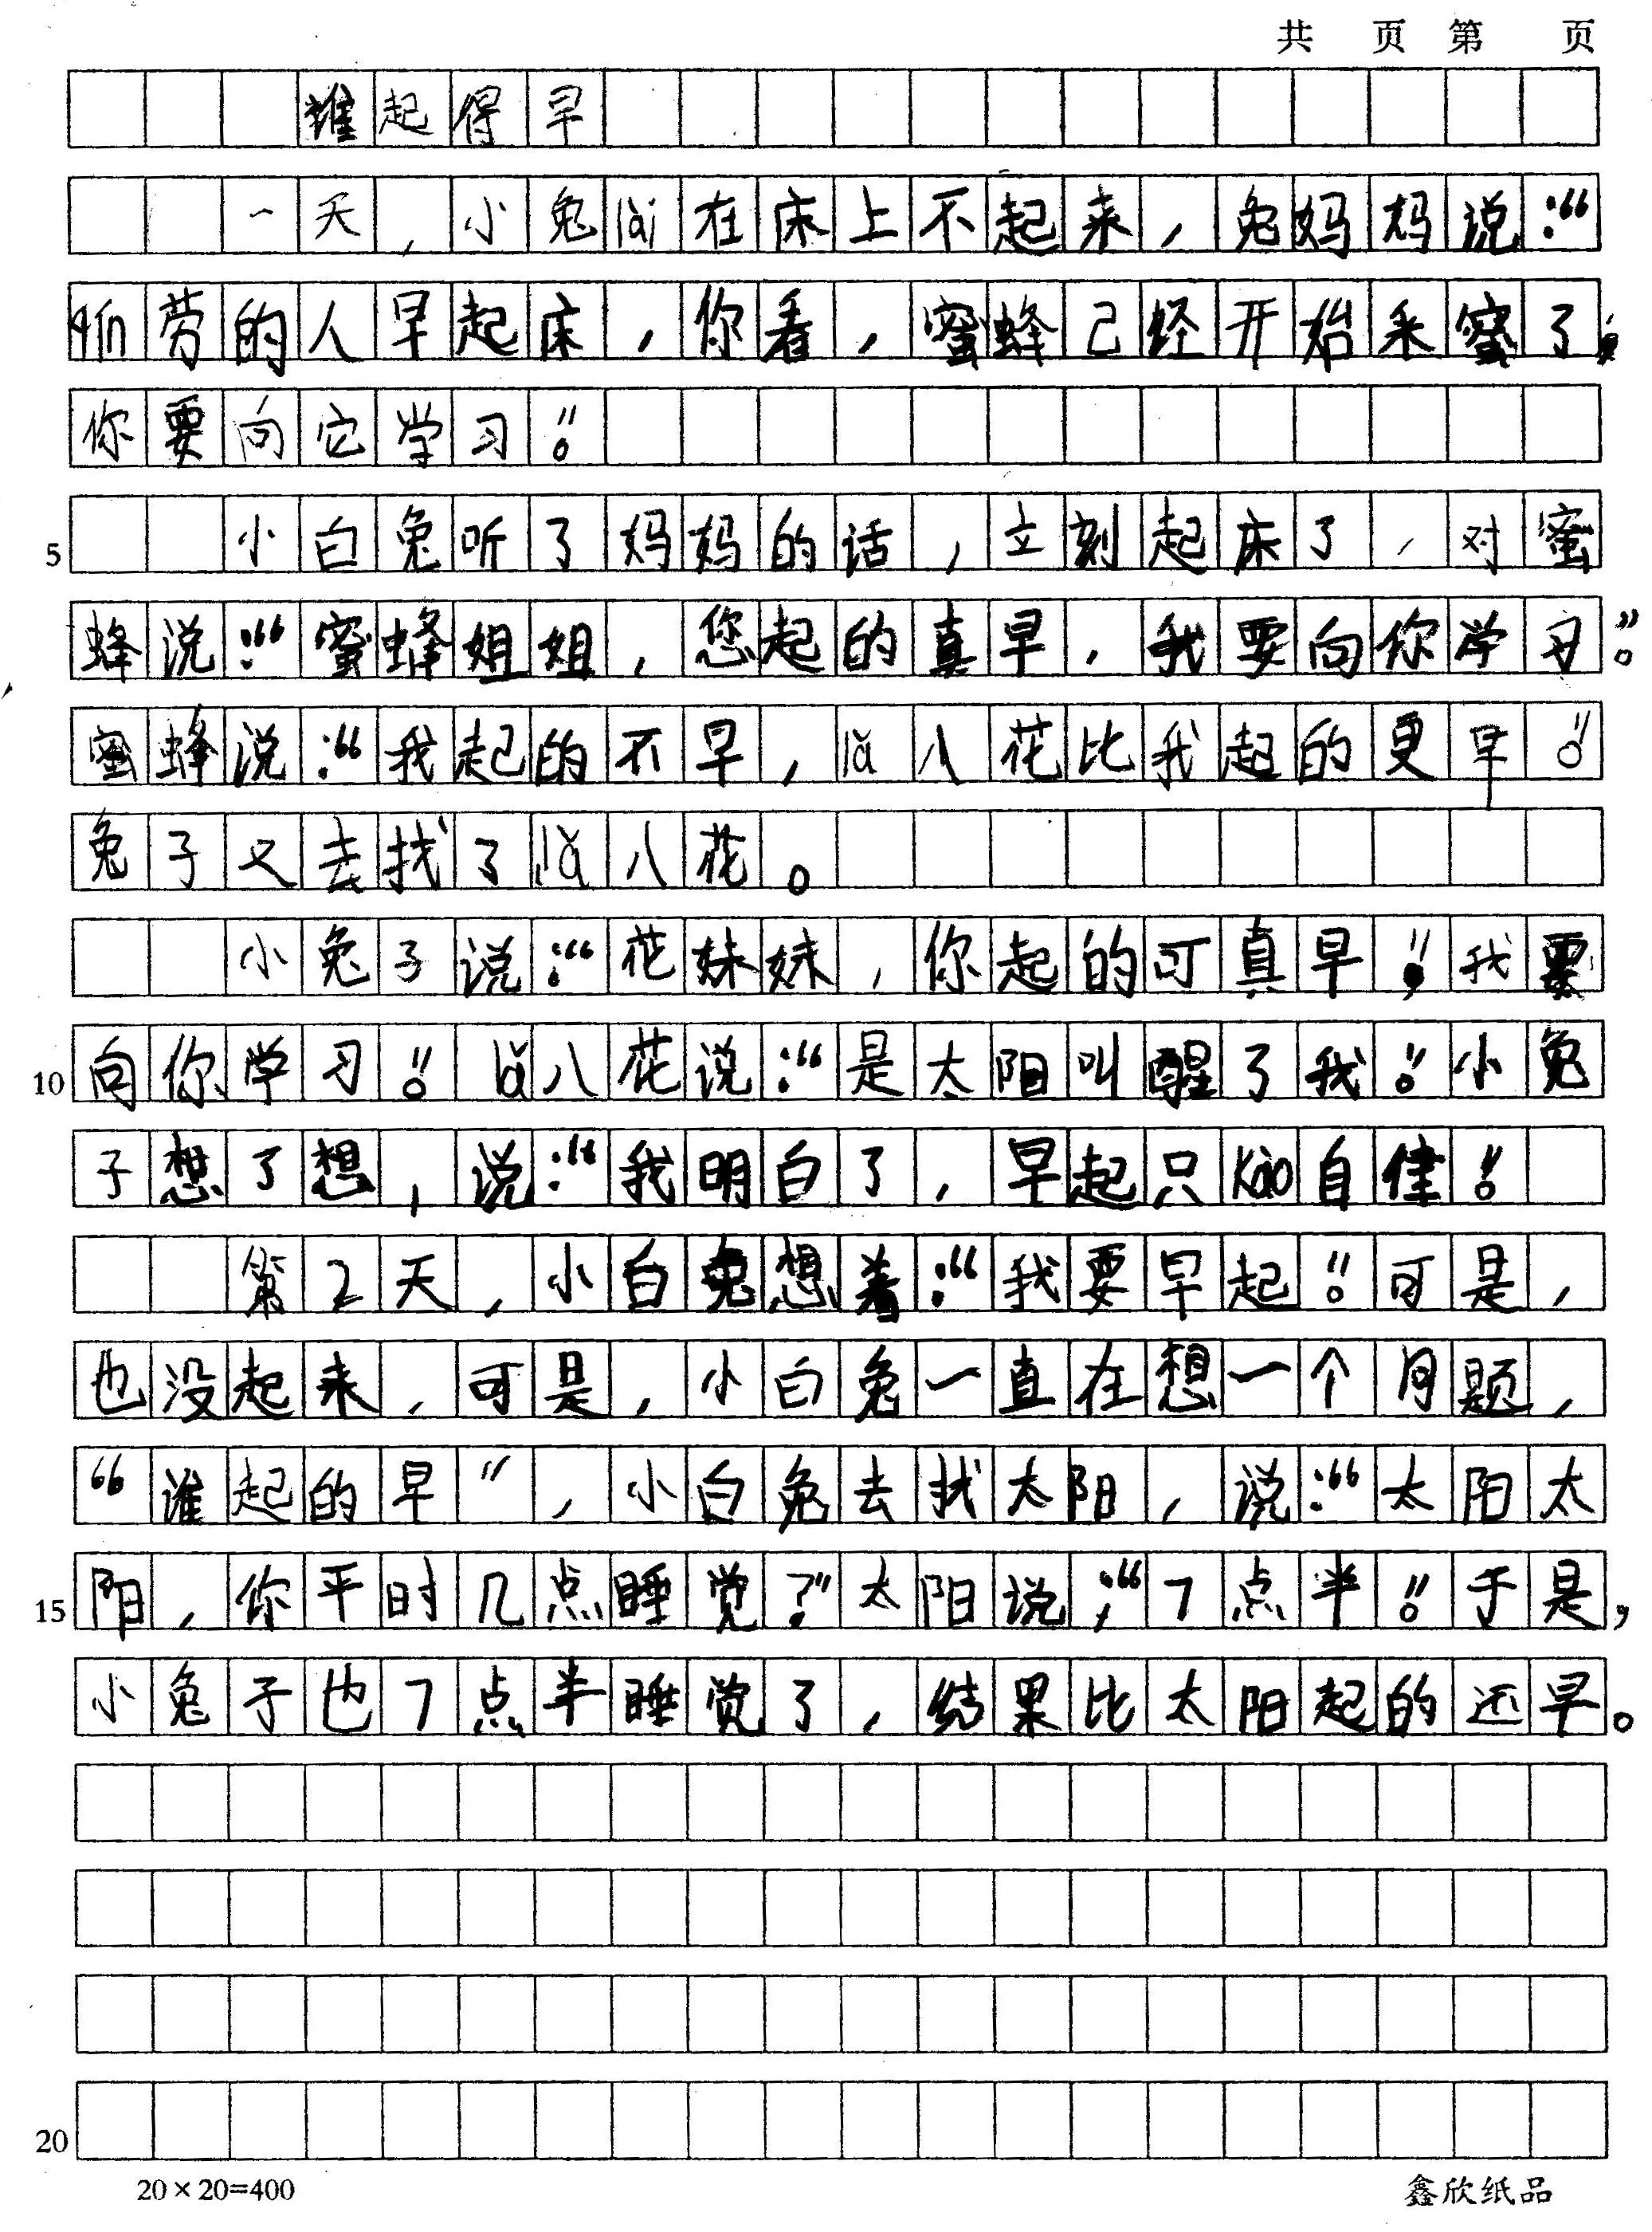 共 页 第 页
谁起得早
一天，小兔lài在床上不起来，兔妈妈说：“
qín劳的人早起床，你看，蜜蜂已经开始采蜜了，
你要向它学习。”
5 小白兔听了妈妈的话，立刻起床了，对蜜
蜂说：“蜜蜂姐姐，您起的真早，我要向你学习。”
蜜蜂说：“我起的不早，lǎ八花比我起的更早。”
兔子又去找了lǎ八花。
小兔子说：“花妹妹，你起的可真早，”我要
10 向你学习。”lǎ八花说：“是太阳叫醒了我。”小兔
子想了想，说：“我明白了，早起只kào自佳。”
第2天，小白兔想着：“我要早起。”可是，
也没起来，可是，小白兔一直在想一个问题，
“谁起的早”，小白兔去找太阳，说：“太阳太
15 阳，你平时几点睡觉？”太阳说：“7点半。”于是，
小兔子也7点半睡觉了，结果比太阳起的还早。
20
20×20=400 鑫欣纸品